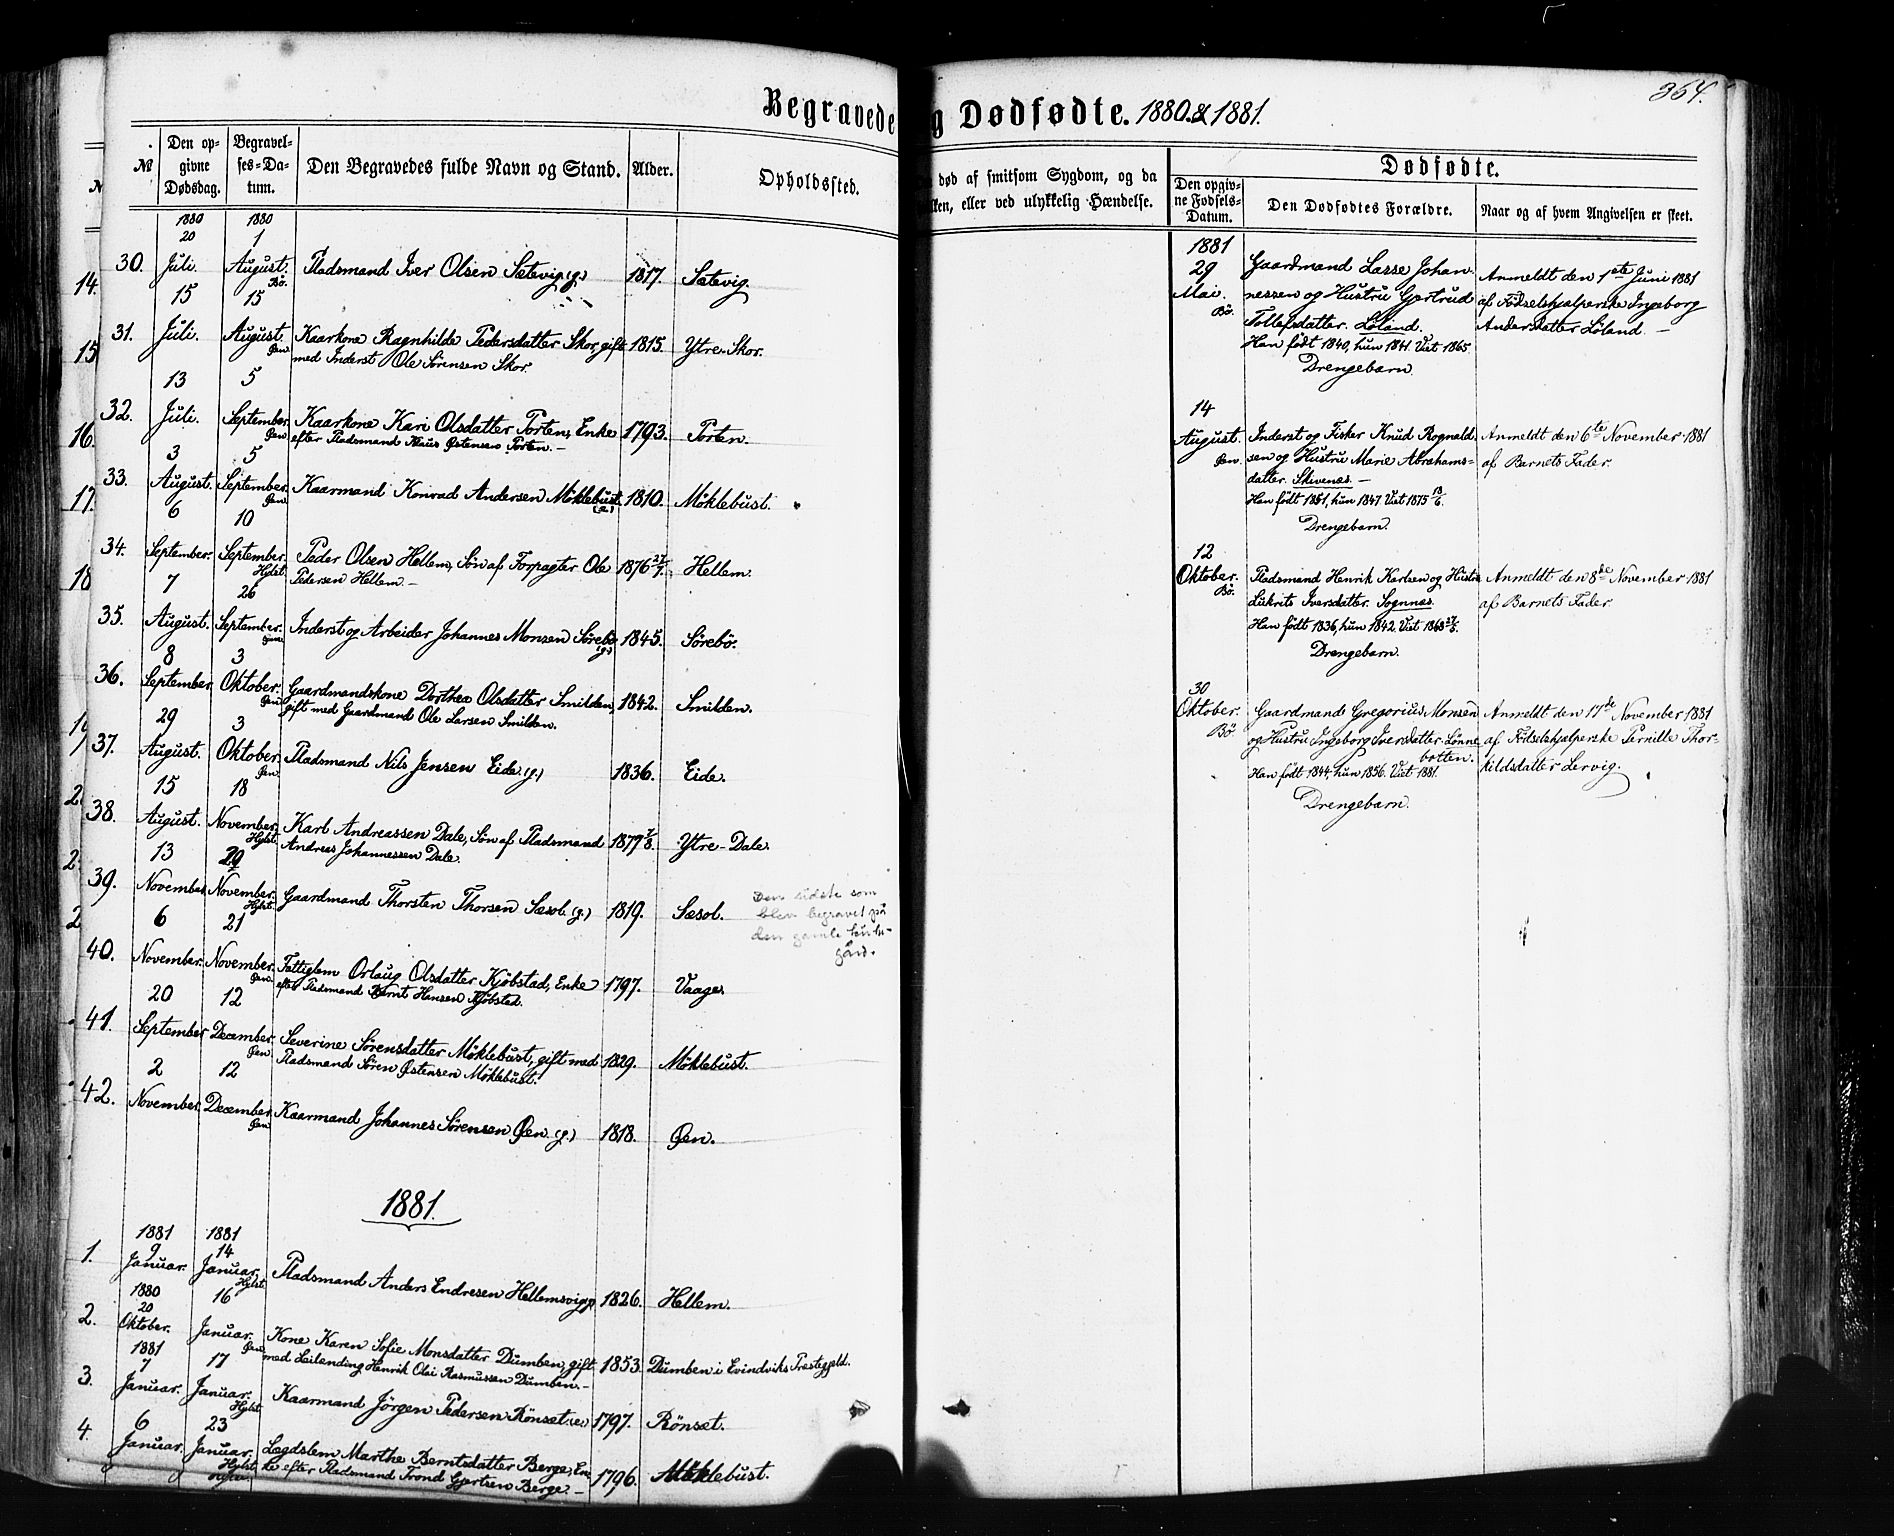 Begravede
g Dødfødte. 1880 & 1881.
364.
№
Den opgivne Dødsdag.
Begravelses-Datum.
Den Begravedes fulde Navn og Stand.
Alder.
Opholdssted.
død af smitsom Sygdom, og da
kken, eller ved ulykkelig Hændelse.
Dødfødte.
Den opgivne Fødsels-Datum.
Den Dødfødtes Forældre.
Naar og af hvem Angivelsen er skeet.
1880 1880
30. 20 Juli. 1 August. Bø. Pladsmand Iver Olsen Sætevig (g.) 1817. Sætevig.
31. 15 Juli. 15 August. Øen Kaarkone Ragnhilde Pedersdatter Skor, gift 1815. Ytre-Skor.
med Inderst Ole Sørensen Skor.
32. 13 Juli. 5 September. Øen Kaarkone Kari Olsdatter Torten, Enke 1793. Torten.
efter Pladsmand Klaus Østensen Torten. —
33. 3 August. 5 September. Øen Kaarmand Konrad Andersen Møklebust. 1810. Møklebust.
34. 6 September. 10 September. Hylst. Peder Olsen Hellem, Søn af Forpagter Ole 1876 27/7. Hellem.
Pedersen Hellem. —
35. 7 August. 26 September. Øen Inderst og Arbeider Johannes Monsen Sørebø. (g.) 1845. Sørebø.
36. 8 September. 3 Oktober. Øen Gaardmandskone Dorthea Olsdatter Smilden, 1842. Smilden.
gift med Gaardmand Ole Larsen Smilden.
37. 29 August. 3 Oktober. Øen Pladsmand Nils Jensen Eide (g.) 1836. Eide.
38. 15 August. 18 November. Hylst. Karl Andreassen Dale, Søn af Pladsmand 1877 7/8. Ytre-Dale.
Andreas Johannessen Dale.
39. 13 November. 29 November. Hylst. Gaardmand Thorsten Thorsen Sæsol. (g.) 1819. Sæsol.
Den sidste som
blev begravet på
den gamle kirke-
gård.
40. 6 November. 21 November. Øen. Fattiglem Orlaug Olsdatter Kjøbstad, Enke 1797. Vaage.
efter Pladsmand Bernt Hansen Kjøbstad.
41. 20 September. 12 December. Øen. Severine Sørensdatter Møklebust, gift med 1829. Møklebust.
Pladsmand Søren Østensen Møklebust.
42. 2 November. 12 December. Øen. Kaarmand Johannes Sørensen Øen (g.) 1818. Øen.
1881.
1881 1881
1. 9 Januar. 14 Januar. Hylst. Pladsmand Anders Endresen Hellemsvig 1826. Hellem.
2. 1880 20 Oktober. 16 Januar. Øen Kone Karen Sofie Monsdatter Dumben, gift 1853. Dumben i Evindviks Præstegjeld.
med Leilending Henrik Olai Rasmussen Dumben. —
3. 1881 7 Januar. 17 Januar. Hylst. Kaarmand Jørgen Pedersen Rønset. (e.) 1797. Rønset.
4. 6 Januar. 23 Januar. Hylst. Lægdslem Marthe Berntsdatter Berge, En- 1796. Møklebust.
ke efter Pladsmand Trond Gjertsen Berge. —
14.
15
16.
17.
18
19
2.
2
2
1881
29 Mai. Bø. Gaardmand Lasse Johan-
nessen og Hustru Gertrud
Tollefsdatter. Løland.
Han født 1840, hun 1841. Viet 1865.
Drengebarn.
Anmeldt den 1ste Juni 1881
af Fødselshjælperske Ingeborg
Andersdatter Løland —
14 August. Øen. Inderst og Fisker Knud Rognald-
sen og Hustru Marie Abrahams-
datter. Skivenes. —
Han født 1851, hun 1847 Viet 1875 13/6.
Drengebarn.
Anmeldt den 6te November 1881
af Barnets Fader.
12 Oktober. Bø. Pladsmand Henrik Karlsen og Hustru
Lukrits Iversdatter. Sognnæs.
Han født 1836, hun 1842. Viet 1868 27/5.
Drengebarn.
Anmeldt den 8de November 1881
af Barnets Fader.
30 Oktober. Bø. Gaardmand Gregorius Monsen
og Hustru Ingeborg Iversdatter Lønne
botten.
Han født 1844, hun 1856. Viet 1881.
Drengebarn.
Anmeldt den 17de November 1881
af Fødselshjælperske Pernille Thor-
kildsdatter Lervig.